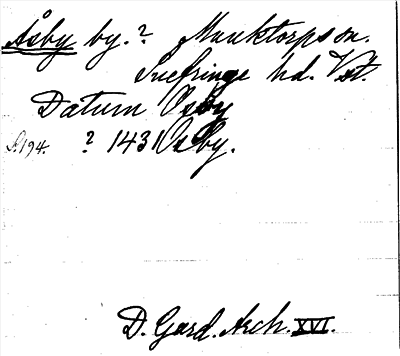 Åsby by.? Munktorps sn.
Snefringe hd. Vstm.
Datum Osby
S. 194. ? 1431 Osby.
D. Gard. Arch. XVI.